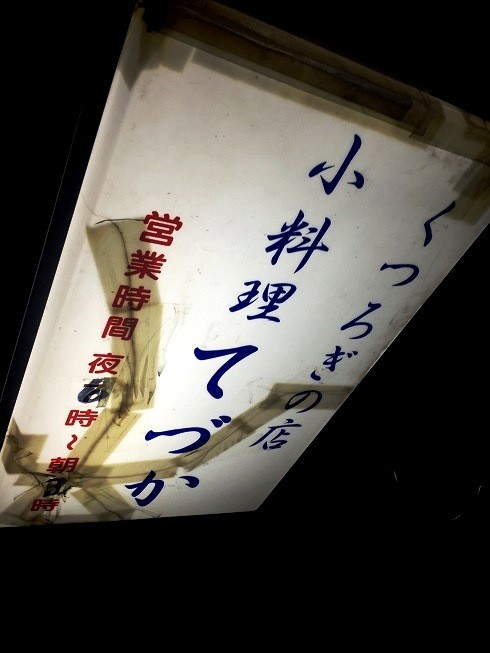 くつろぎの店
小料理
てづか
営業時間 夜時～朝時